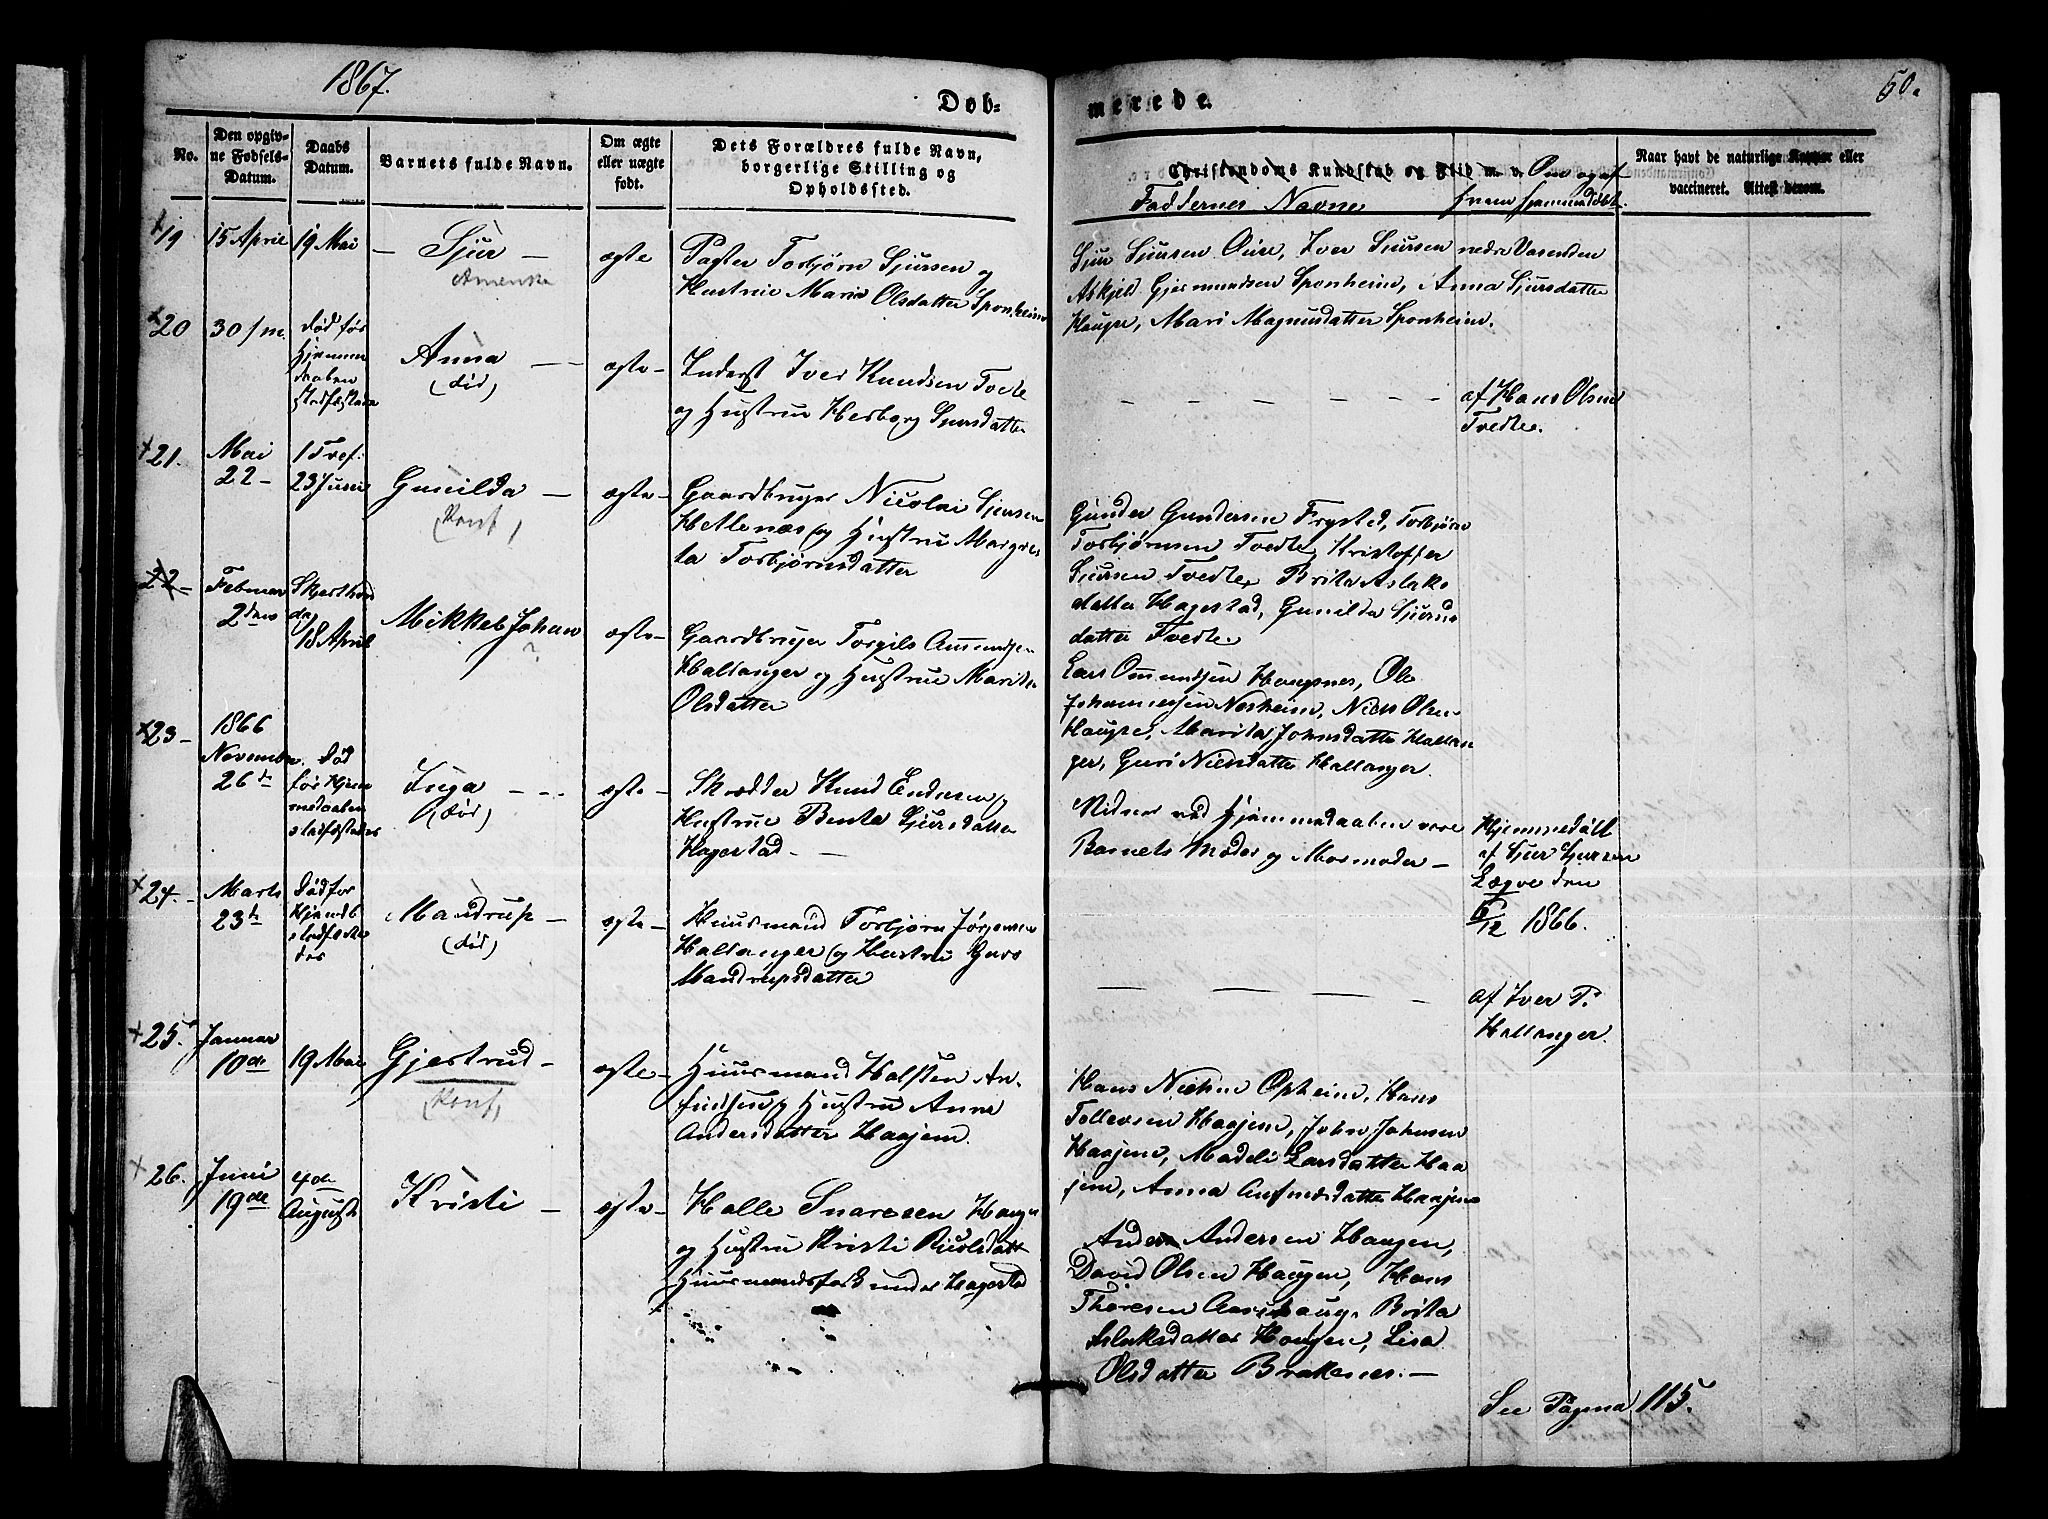 1867.
50.
Døb-
merede.
No.
Den opgiv-
ne Fødsels-
Datum.
Daabs
Datum.
Barnets fulde Navn.
Om ægte
eller uægte
født.
Dets Forældres fulde Navn,
borgerlige Stilling og
Opholdssted.
Christendoms Kundskab og Flid m. v. Om og af
Faddernes Navne
hvem hjemmedøbt.
Naar havt de naturlige Kopper eller
vaccineret. Attest derom.
19
15 April
19 Mai
Sjur
Amerika
ægte
Pagter Torbjørn Sjursen og
Hustrue Maria Olsdatter Sponheim
Sjur Sjursen Oure, Iver Sjursen nedre Vasenden
Askjeld Gjermundsen Sponheim, Anna Sjursdatter
Hauge, Mari Magnusdatter Sponheim.
20
30 /m.
død før
Hjemme
daaben
stadfæstede
Anna
(død)
ægte
Inderst Iver Knudsen Tvete
og Hustru Herborg Sjursdatter
af Hans Olsen
Tvedte.
21.
Mai
22
1 Tref.
23 Juni
Gunilda
(Konf)
ægte
Gaardbruger Nicolai Sjursen
Hellenæs og Hustru Margre
ta Torbjørnsdatter
Gunder Gundersen Frysted, Torbjørn
Torbjørnsen Tvedte, Kristoffer
Sjursen Tvedte, Brita Aslaks
datter Hagestad, Gunilda Sjurs
datter Tvedte.
22
Februar
2den
Skjerthors
dag
18 April
Mikkel Johan
?
ægte
Gaardbruger Torgils Amundsen
Hallanger og Hustrue Marita
Olsdatter
Lars Ommundsen Haugsnes, Ole
Johannesen Nesheim, Niels Olsen
Hauge, Marita Johnsdatter Hallan
ger, Guri Nielsdatter Hallanger.
23
1866
November
26de
Død
før Hjem
medaaben
stadfæstedes
Inga
(død)
ægte
Skrædder Knud Endresen og
Hustrue Benta Sjursdatter
Hagestad
Vidner ved Hjemmedaaben vare
Barnets Moder og Mormoder
Hjemmedøbt
af Sjur Sjursen
Lægve den
6/12 1866.
24.
Marts
23de
Død før
Hjemdb
stadfæste
des
Mandrup
(død)
ægte
Huusmand Torbjørn Jørgensen
Hallanger og Hustru Guro
Mandrupsdatter
af Iver T.
Hallanger.
25.
Januar
10de
19 Mai
Gjertrud
(Konf)
ægte
Huusmand Halsten An-
findsen og Hustru Anna
Andersdatter Haajem.
Hans Nielsen Opheim, Hans
Tollevsen Haajem, John Johnsen
Haajem, Madeli Larsdatter Haa
jem, Anna Anfindsdatter Haajem
26.
Juni
19de
4de
August
Kristi
ægte
Halle Snaresen Haugen
og Hustru Kristi Nicolsdatt
Huusmandsfolk under Hagestad
Anders Anderssen Haugen,
David Olsen Haugen, Hans
Thoresen Aarhaug, Brita
Aslaksdatter Haugen, Lisa
Olsdatter Brakenes.
See Pagina 115.